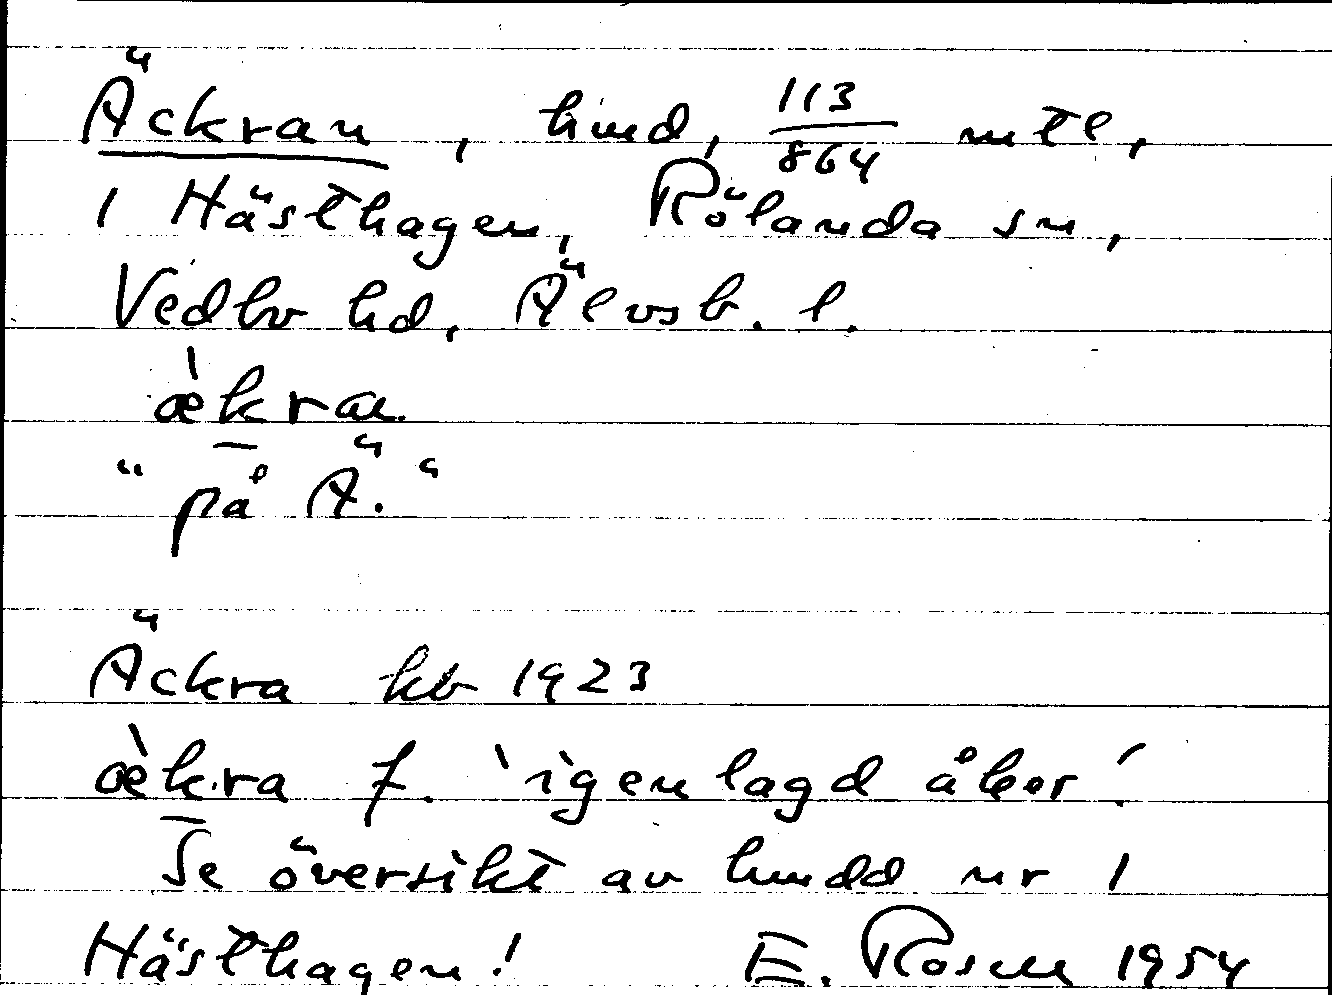 Äckran, hmd, 113/864 mtl,
1 Hästhagen, Rölanda sn,
Vedbo hd, Älvsb. l.
æ̀k̲ran
"på Ä."
Äckra kb 1923
æ̀k̲ra f. 'igenlagd åker'.
Se översikt av hmdd nr 1
Hästhagen! E. Rosell 1954